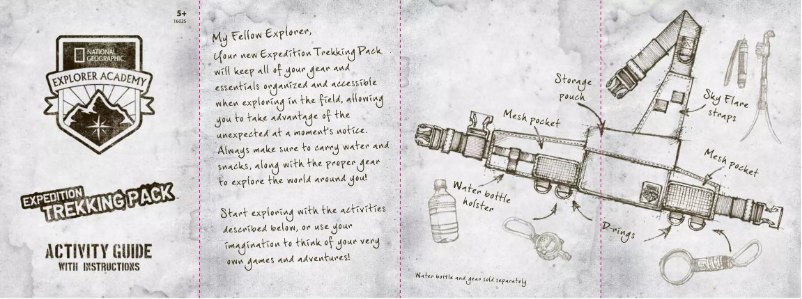 5+
16825
NATIONAL
GEOGRAPHIC
EXPLORER ACADEMY
EXPEDITION
TREKKING PACK
ACTIVITY GUIDE
WITH INSTRUCTIONS
My Fellow Explorer,
Your new Expedition Trekking Pack
will keep all of your gear and
essentials organized and accessible
when exploring in the field, allowing
you to take advantage of the
unexpected at a moment's notice.
Always make sure to carry water and
snacks, along with the proper gear
to explore the world around you!
Start exploring with the activities
described below, or use your
imagination to think of your very
own games and adventures!
Storage
pouch
Mesh pocket
Sky Flare
straps
Mesh pocket
Water bottle
holster
D-rings
Water bottle and gear sold separately